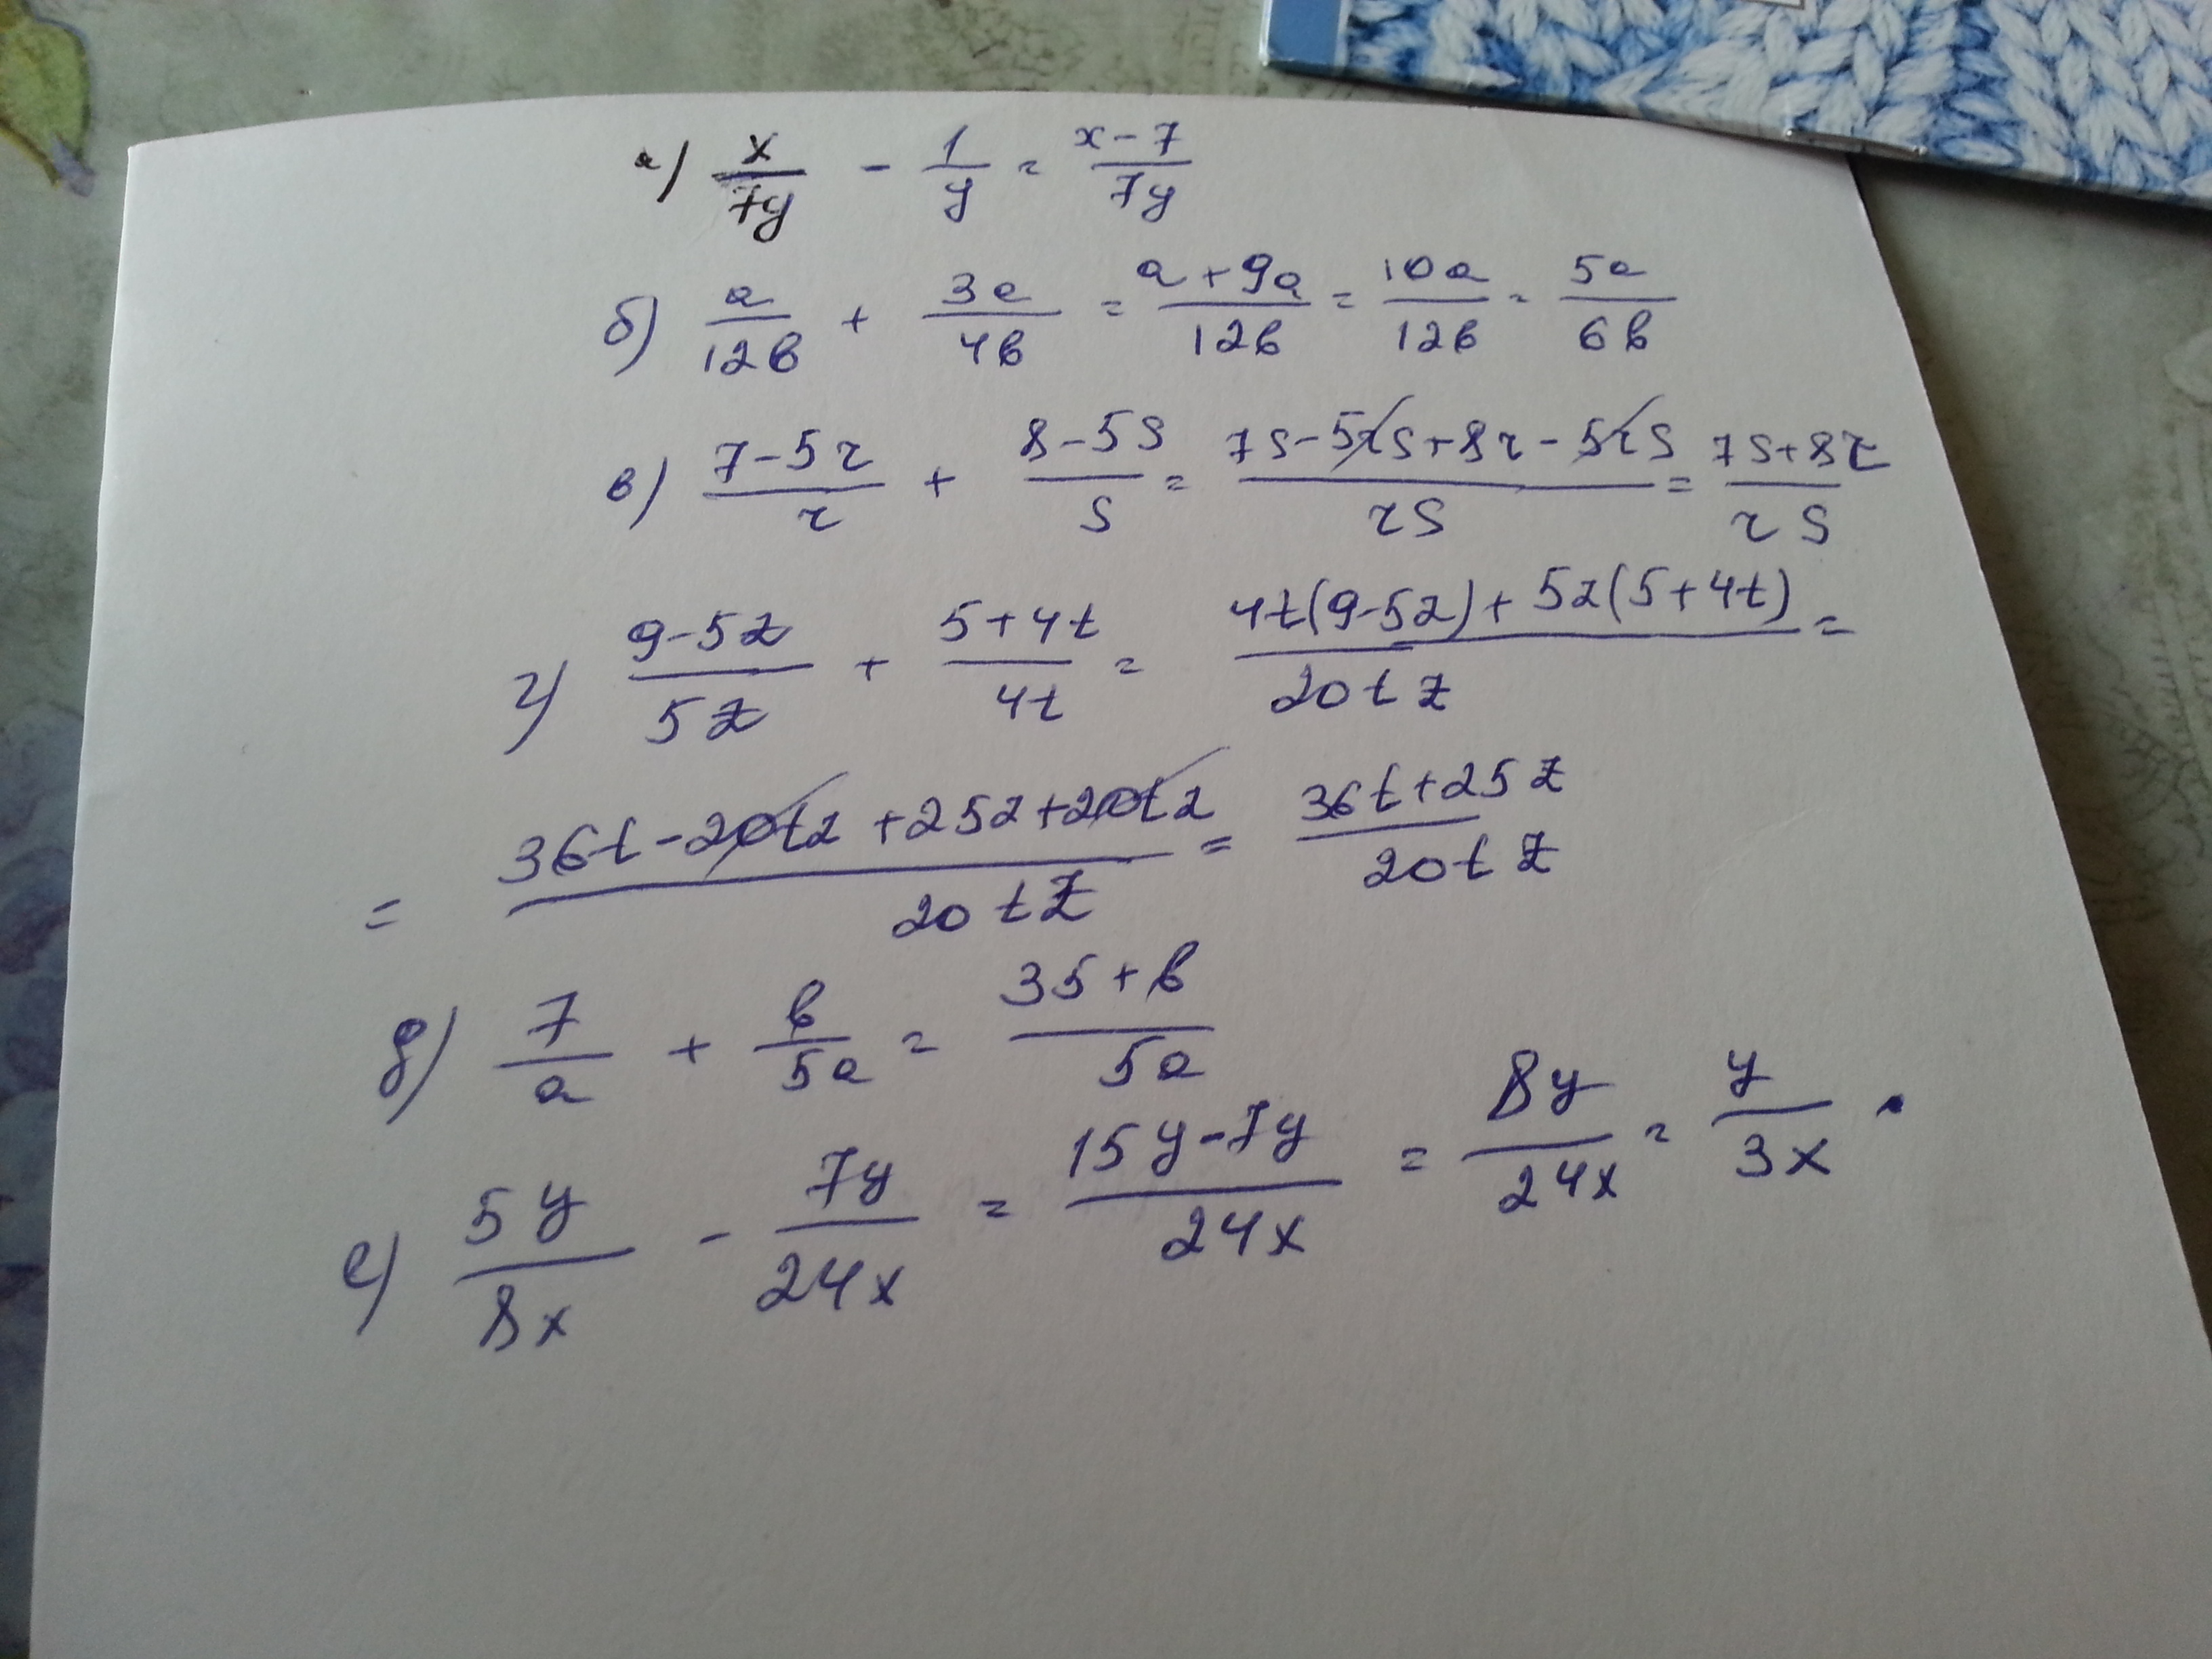 а) x/7y - 1/y = x-7/7y
б) a/12b + 3a/4b = a+9a/12b = 10a/12b = 5a/6b
в) 7-5r/r + 8-5s/s = 7s-5rs+8r-5rs/rs = 7s+8r/rs
г) 9-5z/5z + 5+4t/4t = 4t(9-5z)+5z(5+4t)/20tz =
= 36t-20tz+25z+20tz/20tz = 36t+25z/20tz
д) 7/a + b/5a = 35+b/5a
е) 5y/8x - 7y/24x = 15y-7y/24x = 8y/24x = y/3x .